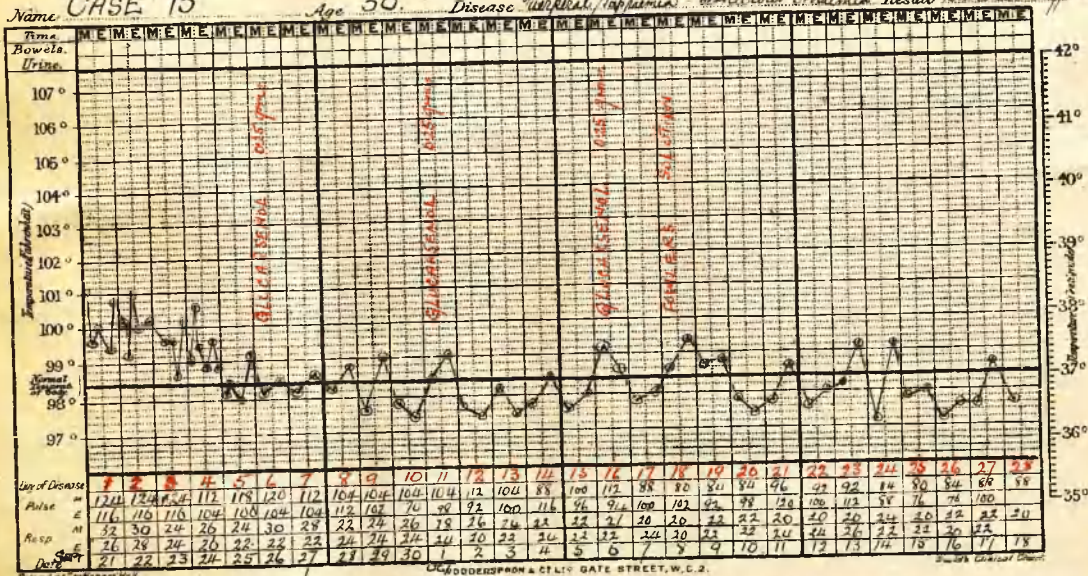 Name CASE 15 Age 30. Disease Result
Time M E M E M E M E M E M E M E M E M E M E M E M E M E M E M E M E M E M E M E M E M E M E M E M E M E M E M E M E
Bowels.
Urine.
107° 42°
106° 41°
105°
104° 40°
103°
102° 39°
101°
100° 38°
99° 37°
98°
97° 36°
35°
Temperature (Fahrenheit)
Temperature (Centigrade)
Normal Temperature of Body
GLUCARSENOL 0.25 grms.
GLUCARSENOL 0.25 grms.
GLUCARSENOL 0.25 grms.
FOWLERS SOLUTION
Day of Disease 1 2 3 4 5 6 7 8 9 10 11 12 13 14 15 16 17 18 19 20 21 22 23 24 25 26 27 28
Pulse M 124 124 124 112 118 120 112 104 104 104 104 112 104 88 100 112 88 80 84 84 96 92 92 84 80 84 88 88
E 116 116 116 104 100 104 104 112 102 98 92 100 116 96 100 102 92 98 120 100 112 88 76 76 100
Resp. M 32 30 24 26 24 30 28 22 24 26 28 26 26 22 22 21 20 20 22 22 20 20 20 24 20 22 22 20
E 26 28 24 26 22 22 22 24 24 24 20 22 24 22 22 24 20 22 22 24 24 26 22 22 20 22
Date Sept 21 22 23 24 25 26 27 28 29 30 1 2 3 4 5 6 7 8 9 10 11 12 13 14 15 16 17 18
Oct WODDERSPOON & Co LTD GATE STREET, W.C.2.